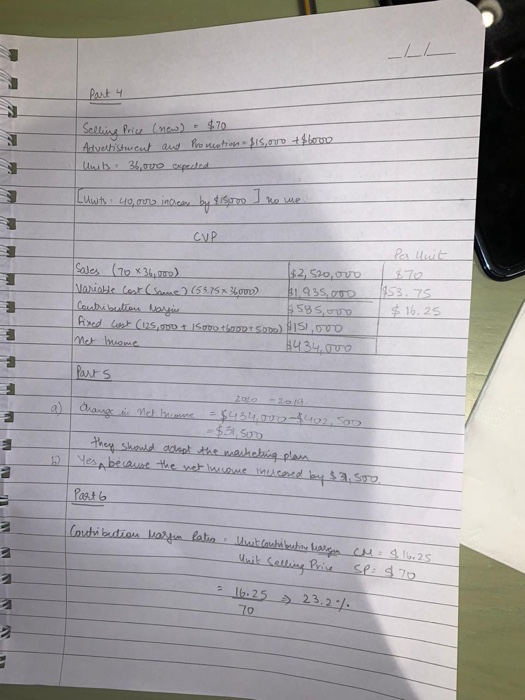 _/_/_
Part 4
Selling Price (new) = $70
Advertistment and Promotion = $15,000 + $6000
Units = 36,000 expected
[Units = 40,000 increase by $15000] no use
CVP
Per Unit
Sales (70 x 36,000) $2,520,000 $70
Variable Cost (Same) (53.75 x 36000) $1,935,000 $53.75
Contribution Margin $585,000 $16.25
Fixed Cost (125,000 + 15000 + 6000 + 5000) $151,000
Net Income $434,000
Part 5
2020 - 2019
a) Change in Net Income = $434,000 - $402,500
= $31,500
they should adopt the marketing plan
b) Yes, because the net income increased by $31,500
Part 6
Contribution Margin Ratio = Unit Contribution Margin CM = $16.25
Unit Selling Price SP = $70
= 16.25 ⇒ 23.2%
70